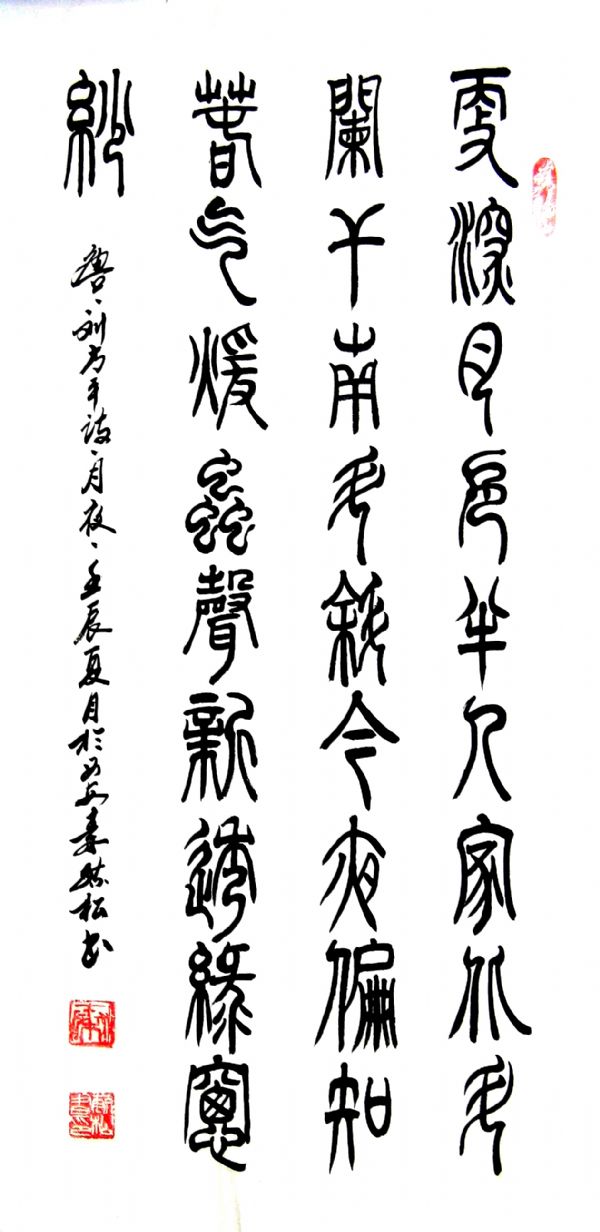 更深月色半人家北斗
闌干南斗斜今夜偏知
春气煖蟲聲新透綠窻
紗
唐、刘方平诗、月夜、壬辰夏月於西安 松书